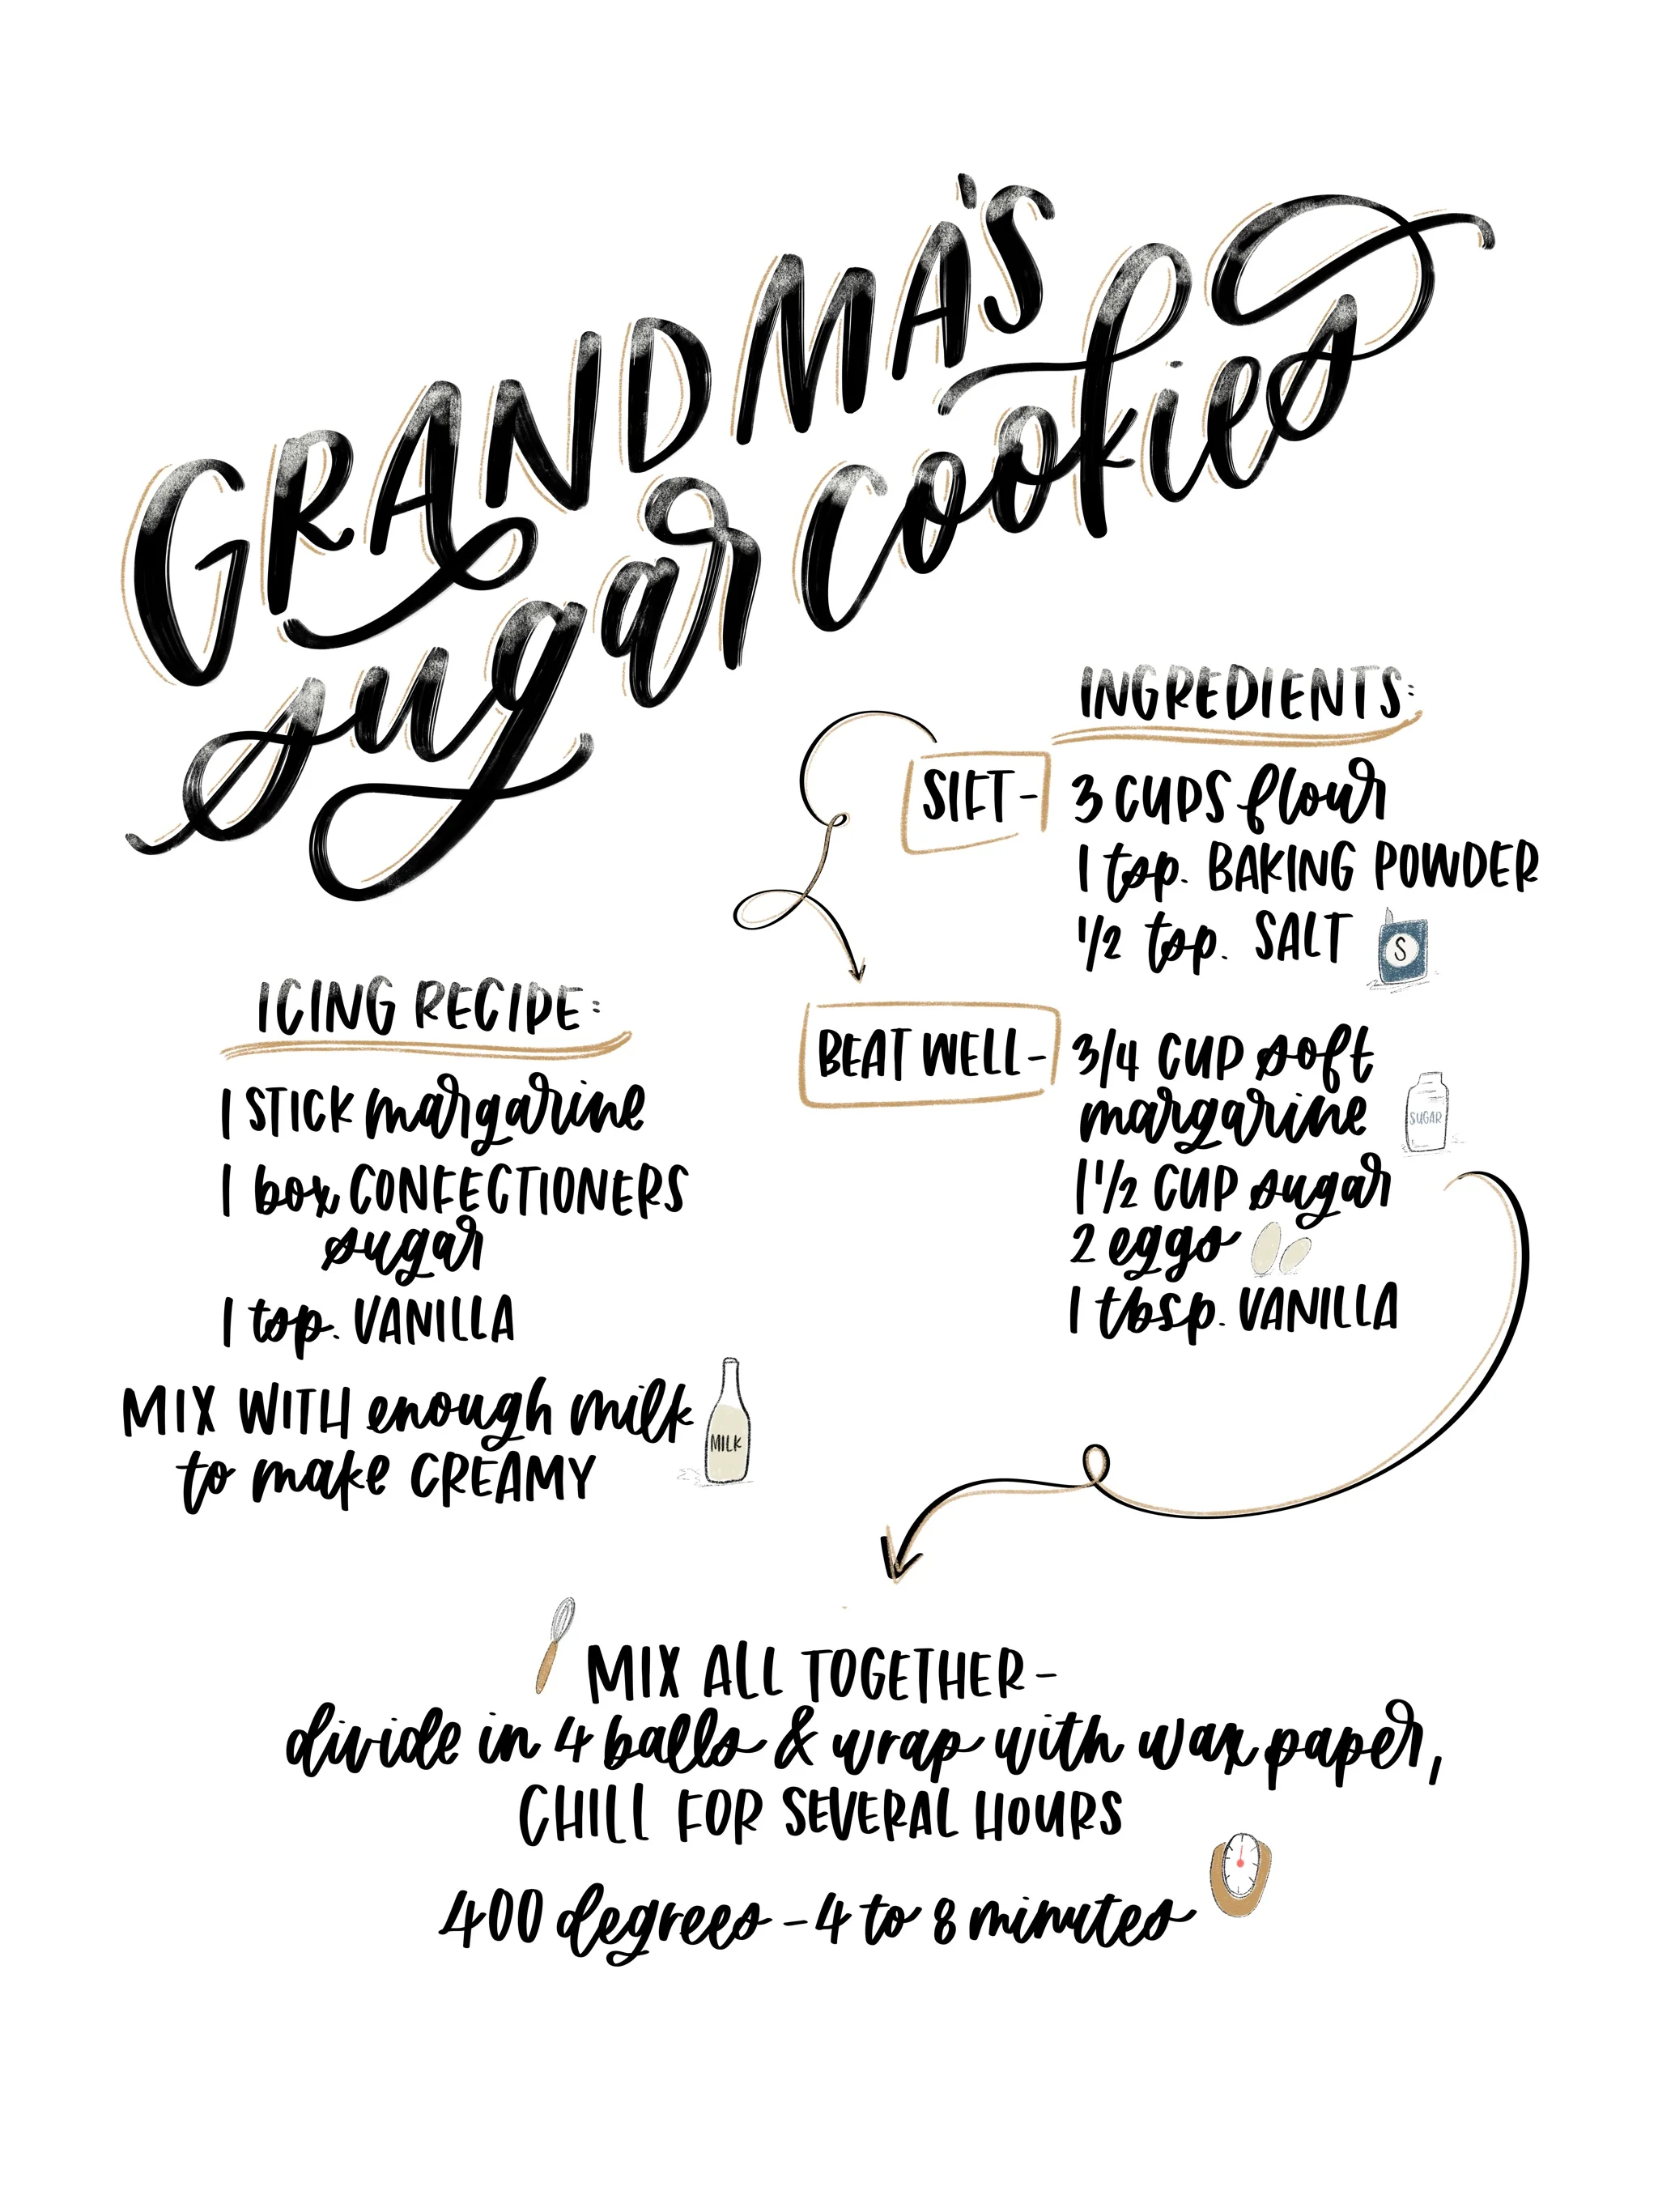 GRANDMA'S
sugar cookies
INGREDIENTS:
SIFT- 3 CUPS flour
1 tsp. BAKING POWDER
1/2 tsp. SALT
S
BEAT WELL- 3/4 CUP soft
margarine
SUGAR
1 1/2 CUP sugar
2 eggs
1 tbsp. VANILLA
ICING RECIPE:
1 STICK margarine
1 box CONFECTIONERS
sugar
1 tsp. VANILLA
MIX WITH enough milk
to make CREAMY
MILK
MIX ALL TOGETHER-
divide in 4 balls & wrap with wax paper,
CHILL FOR SEVERAL HOURS
400 degrees - 4 to 8 minutes